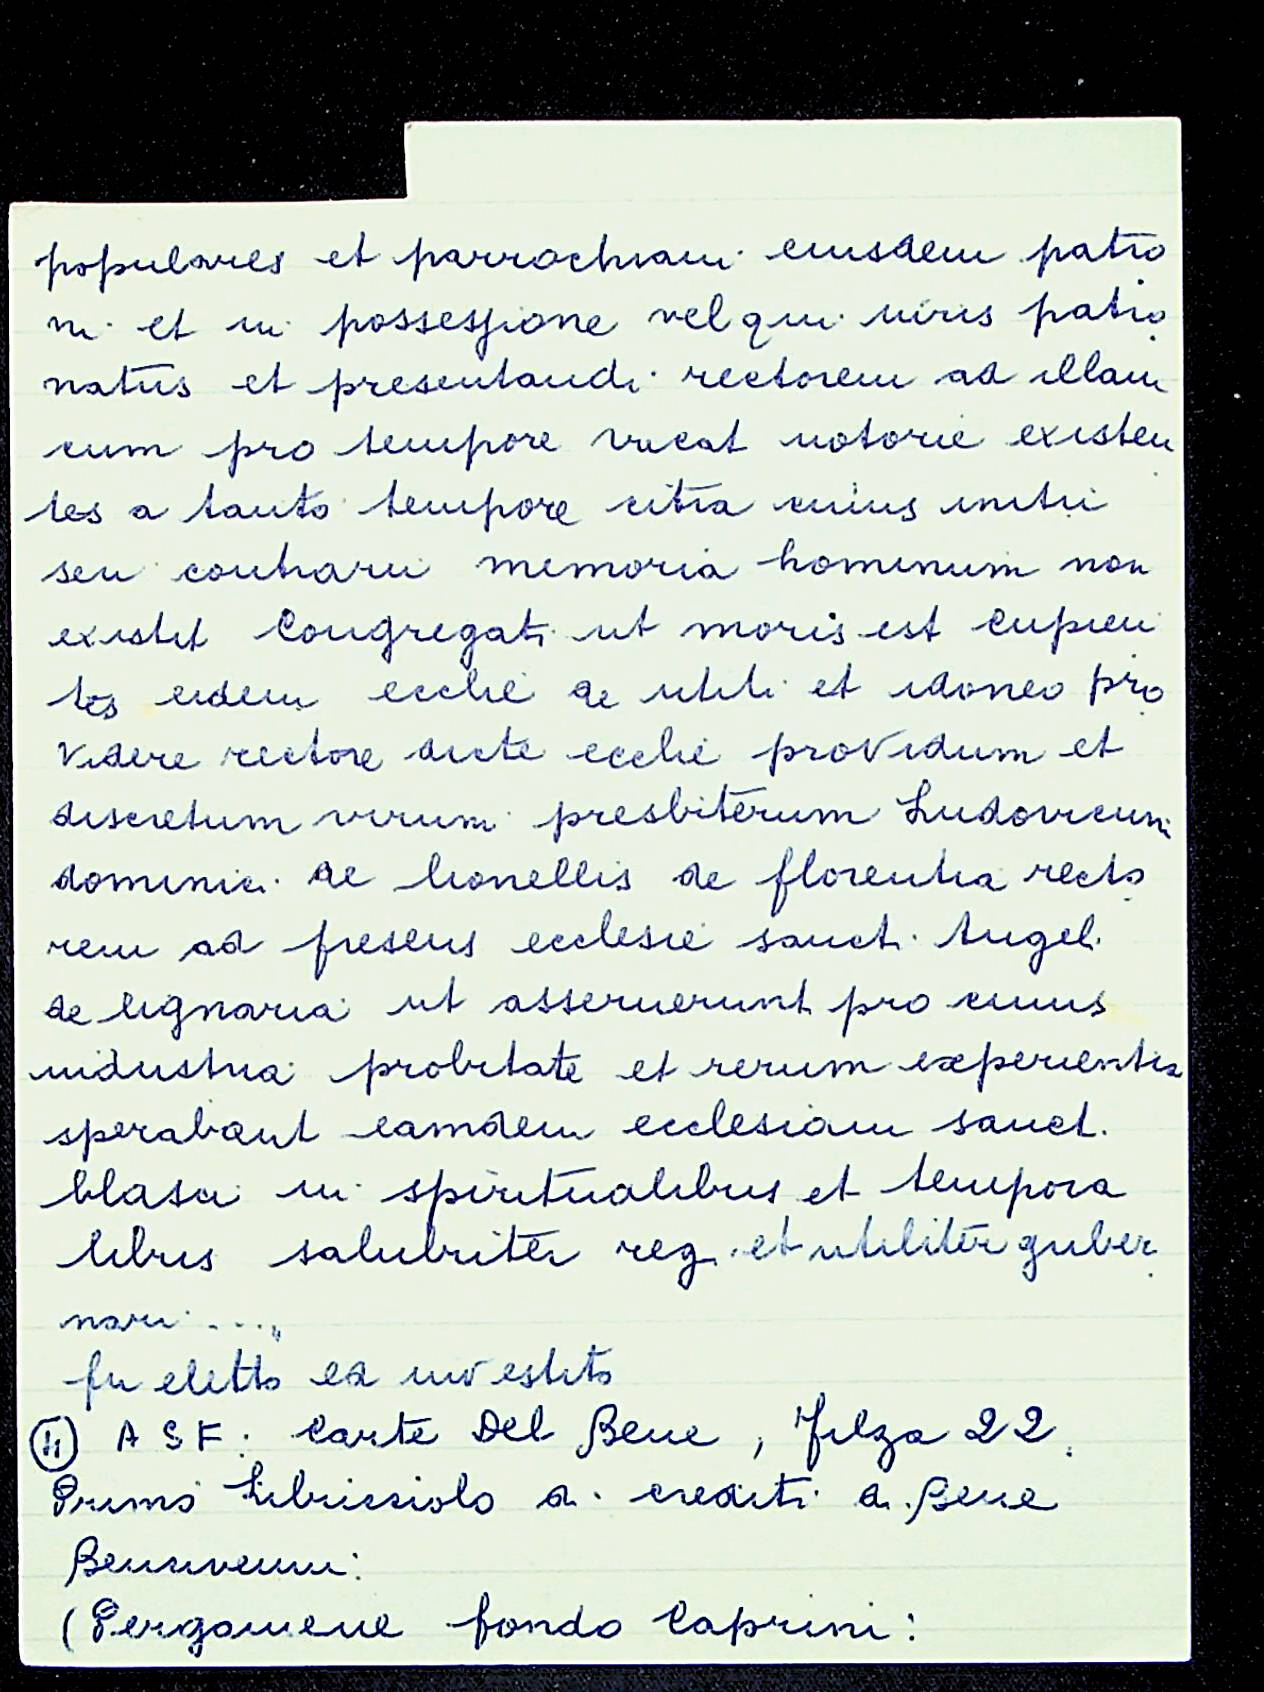 populares et parrochiani eiusdem patro
ni et in possessione vel qui iuris patro
natus et presentandi rectorem ad illam
cum pro tempore vacat notorie existen
tes a tanto tempore citra cuius initii
seu contrarii memoria hominum non
existit Congregati ut moris est Cupien
tes eidem ecclie de utili et idoneo pro
videre rectore dicte ecclie providum et
discretum virum presbiterum Ludovicum
dominici de lionellis de florentia recto
rem ad presens ecclesie sanct. Angel.
de lignaria ut asseruerunt pro cuius
industria probitate et rerum experientia
sperabant eamdem ecclesiam sanct.
blasii in spiritualibus et tempora
libus salubriter reg. et utiliter guber
nari ...."
fu eletto ed investito
(11) A S F. Carte Del Bene, Filza 22.
Primo Libricciolo di crediti di Bene
Bencivenni:
(Pergamene fondo Caprini: